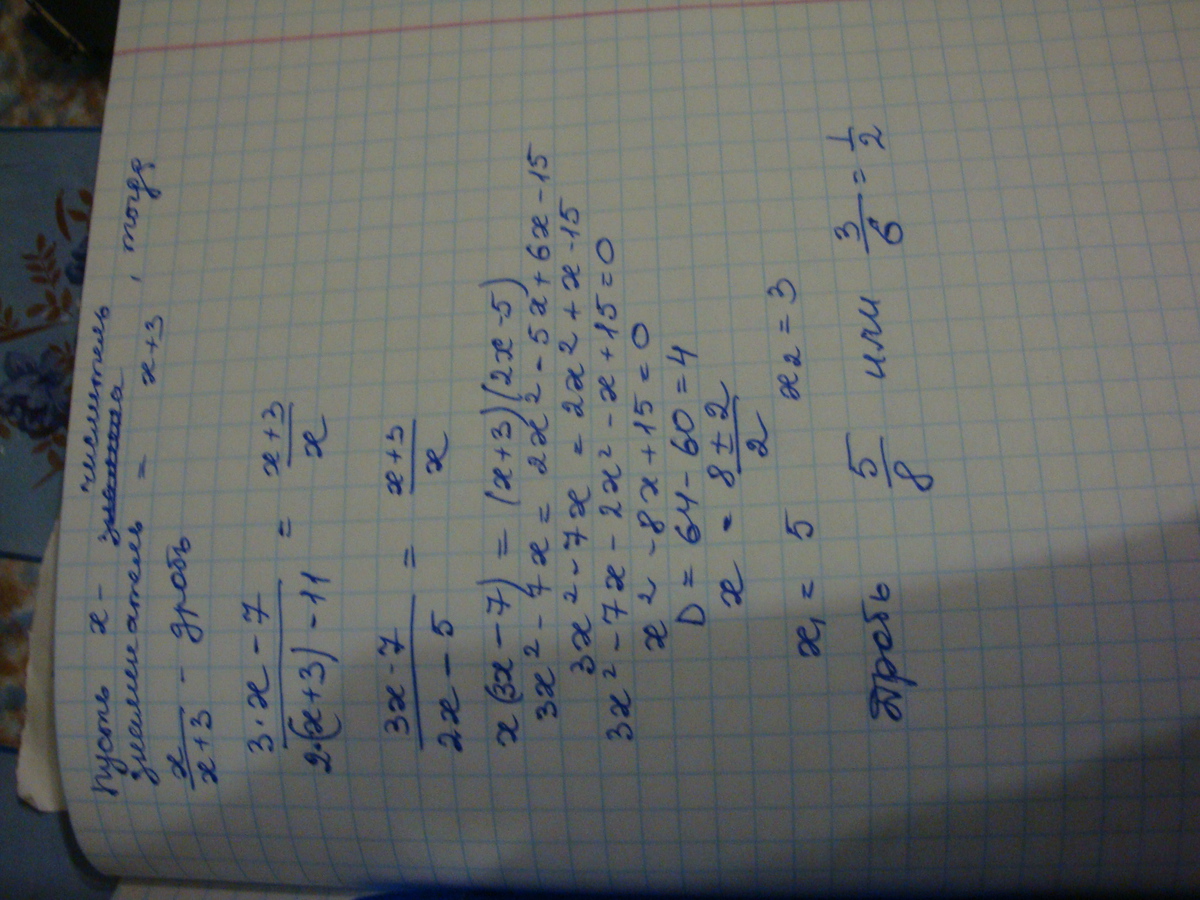 Пусть x - числитель
знаменатель = x+3, тогд
x/(x+3) - дробь
(3·x-7)/(2·(x+3)-11) = (x+3)/x
(3x-7)/(2x-5) = (x+3)/x
x(3x-7) = (x+3)(2x-5)
3x² - 7x = 2x² - 5x + 6x - 15
3x² - 7x = 2x² + x - 15
3x² - 7x - 2x² - x + 15 = 0
x² - 8x + 15 = 0
D = 64 - 60 = 4
x = (8±2)/2
x₁ = 5 x₂ = 3
Дробь 5/8 или 3/6 = 1/2